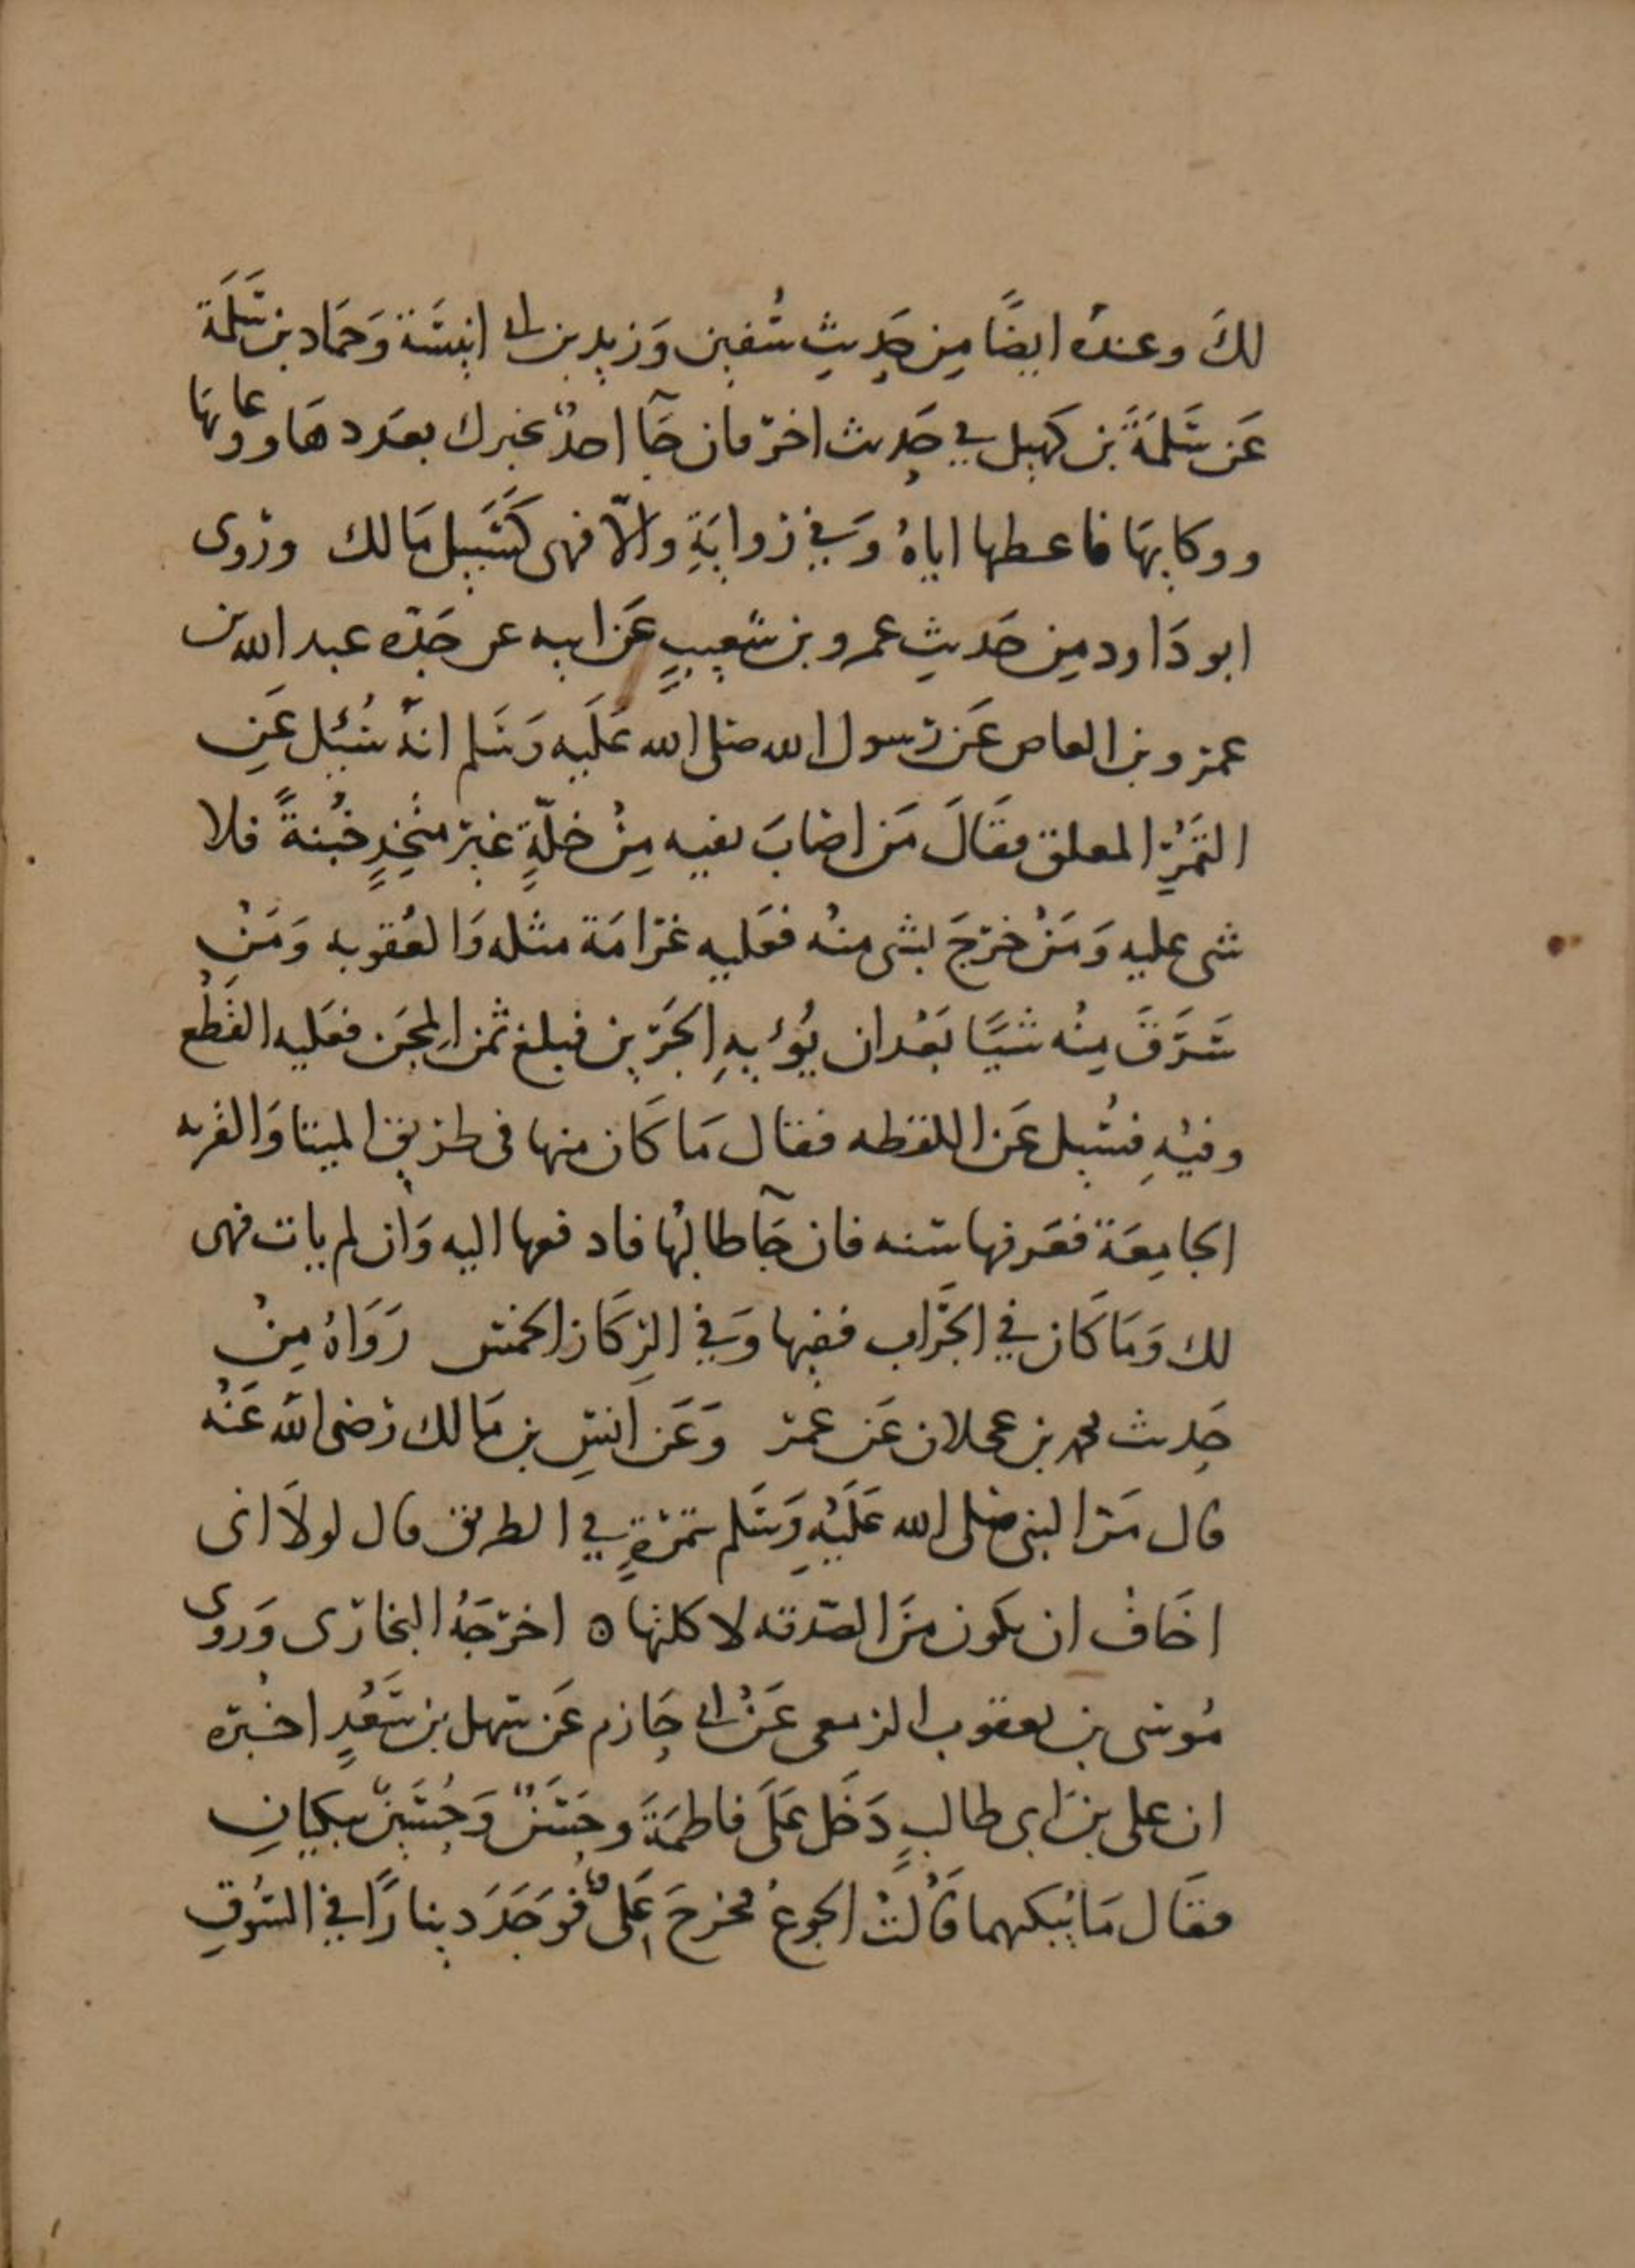 لكَ وعندَه ايضًا مِن حَدِيثِ سُفين وَزيد بن ابي انيسَة وَحمَاد بن سَلَمَة
عَن سَلمَةَ بن كهيل في حَدِيث اخر فان جَآ احدٌ يخبرك بعَددهَا ووعايها
ووكايهَا فاعطها اياهُ وَفي رَوايَةِ والّا فهى كسَبيل مَالك ورَوى
ابو دَاود مِن حَديثِ عمرو بن شعيبٍ عَن ابيه عن جَدّه عبد الله بن
عمرو بن العاص عَن رَسول الله صَلى الله عَلَيه وَسَلم انهُ سُئِل عَنِ
التَمَرِ المعلق فقَالَ مَن اصَابَ بفيه مِنْ خلّةٍ غير متخِذٍ خُبنةً فلا
شى عليه وَمَنْ خرَجَ بشى منهُ فعَليه غرَامَة مثله وَالعُقوبه وَمَنْ
سَرَقَ مِنْه شَيًا بَعْد ان يُؤيهِ الجَرين فبلغ ثمن المِجَن فعَليه القَطْع
وفيْهِ فسُيل عَن اللقطه فقال مَا كَان منها فى طريق الميتا وَالقَريه
الجامِعَة فعَرفها سَنه فان جَآ طالبُهَا فادفعها اليه وَان لم يات فهى
لك وَمَا كَان في الخَرَاب ففيها وَفي الرِكَاز الخمسَ رَوَاهُ مِنْ
حَدِيث محمد بن عجلان عَن عَمرو وَعَن انسِ بن مَالك رَضى الله عَنْه
قال مَرّ النبى صَلى الله عَلَيْهِ وَسَلم بتمَرةٍ في الطريق قال لولَا انى
اخَافُ ان يكون مَن الصَدقه لاكلتها ه اخرَجَهُ البخارَى وَروى
مُوسَى بن يعقوب الزمعى عَنْ ابي حَازم عَن سَهل بن سَعْدٍ اخْبَره
ان على بن ابى طالبٍ دَخَل عَلَى فاطمَةَ وحَسَنٌ وَحُسَيْنٌ يبكيَانِ
فقَال مَا يُبكيهما قَالَتْ الجوعُ فخرَجَ عَلىٌ فوَجَدَ دينارًا في السُوقِ